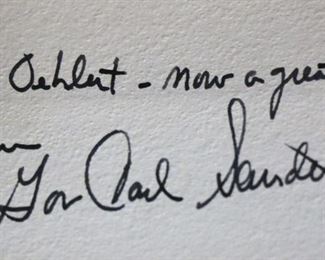 Oehlert - now a grea
Gov Carl Sande